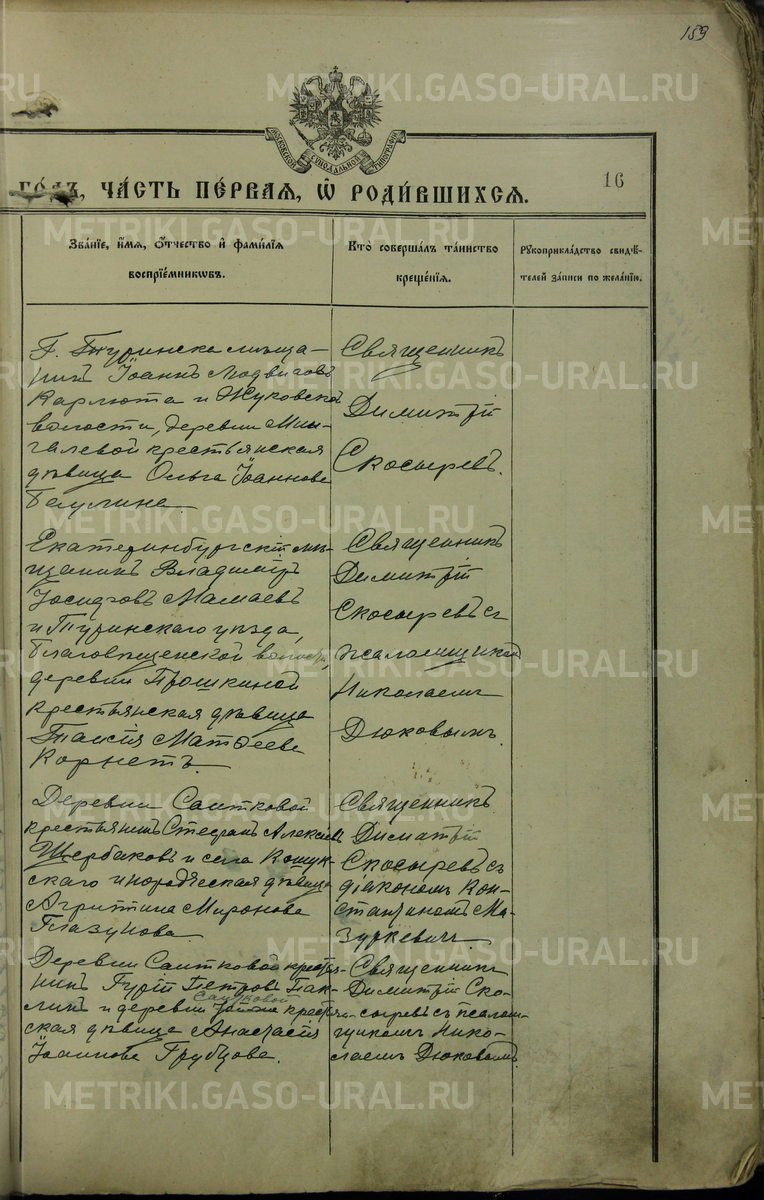 159
METRIKI.GASO-URAL.RU
16
го́дъ, ча́сть пе́рваѧ, ѡ҆ роди́вшихсѧ.
Зва́нїе, и҆́мѧ, ѻ҆́тчество и҆ фами́лїѧ
воспрїе́мникѡвъ.
Кто̀ соверша́лъ та́инство
креще́нїѧ.
Рꙋкоприкла́дство свидѣ́-
телей за́писи по жела́нїю.
Г. Туринска мѣща-
нинъ Іоаннъ Людвиговъ
Карлюта и Жуковской
волости, деревни Мин-
галевой крестьянская
дѣвица Ольга Іоаннова
Баулина.
Священникъ
Димитрій
Скосыревъ.
Екатеринбургскій мѣ-
щанинъ Владиміръ
Іосифовъ Мамаевъ
и Туринскаго уѣзда,
Благовѣщенской волости,
деревни Прошкиной
крестьянская дѣвица
Таисія Матѳеева
Корнетъ.
Священникъ
Димитрій
Скосыревъ съ
псаломщикомъ
Николаемъ
Дюковымъ.
Деревни Саитковой
крестьянинъ Стефанъ Алексіевъ
Щербаковъ и села Кошук-
скаго инородческая дѣвица
Агриппина Миронова
Глазунова.
Священникъ
Димитрій
Скосыревъ съ
діакономъ Кон-
стантиномъ Ма-
зуркевичъ.
Деревни Саитковой крестья-
нинъ Гурій Петровъ Пак-
линъ и деревни Саитковой крестьян-
ская дѣвица Анастасія
Іоаннова Грубцова.
Священникъ
Димитрій Ско-
сыревъ съ псалом-
щикомъ Нико-
лаемъ Дюковымъ.